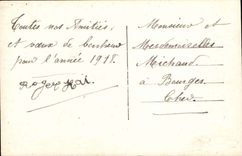 Toutes nos Amitiés,
et vœux de bonheur
pour l'année 1918.
Monsieur et
Mesdemoiselles
Michaud
à Bourges
Cher.